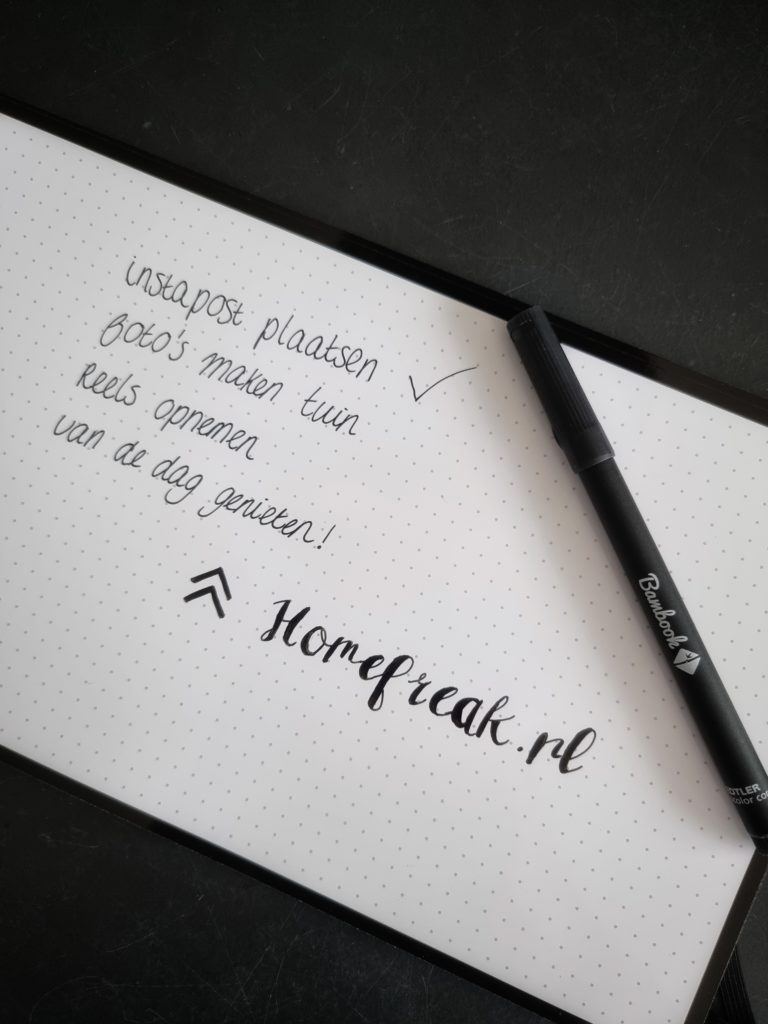 instapost plaatsen
foto's maken tuin
Reels opnemen
van de dag genieten!
Homefreak.nl
Bambook
color